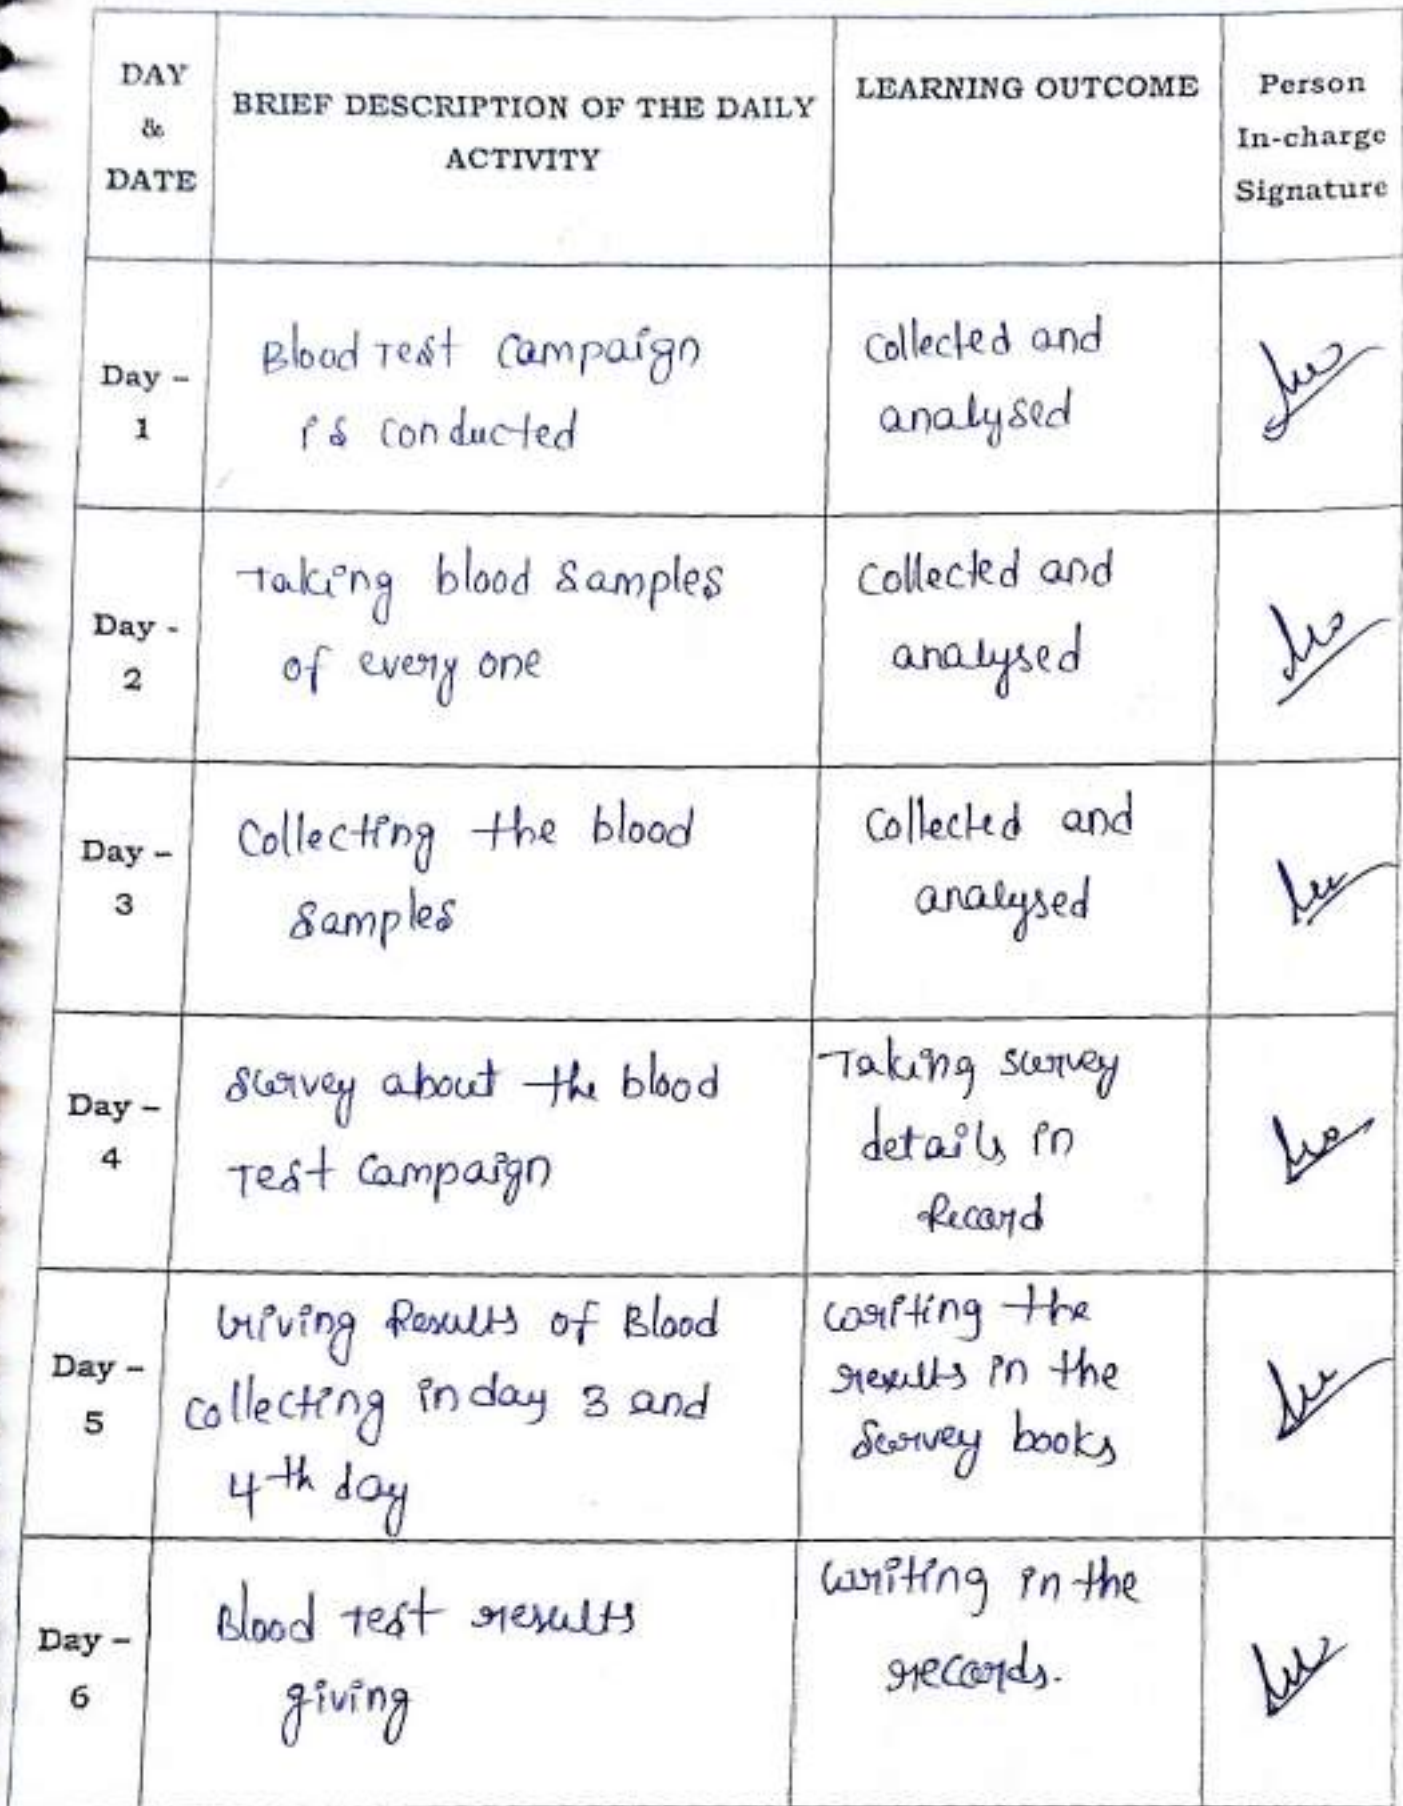 DAY
&
DATE
BRIEF DESCRIPTION OF THE DAILY
ACTIVITY
LEARNING OUTCOME
Person
In-charge
Signature
Day –
1
Blood Test Campaign
is conducted
Collected and
analysed
Day -
2
Taking blood samples
of every one
Collected and
analysed
Day –
3
Collecting the blood
samples
Collected and
analysed
Day –
4
Survey about the blood
Test Campaign
Taking survey
details in
Record
Day –
5
Giving Results of Blood
collecting in day 3 and
4th day
writing the
results in the
Survey books
Day –
6
Blood Test results
giving
writing in the
records.